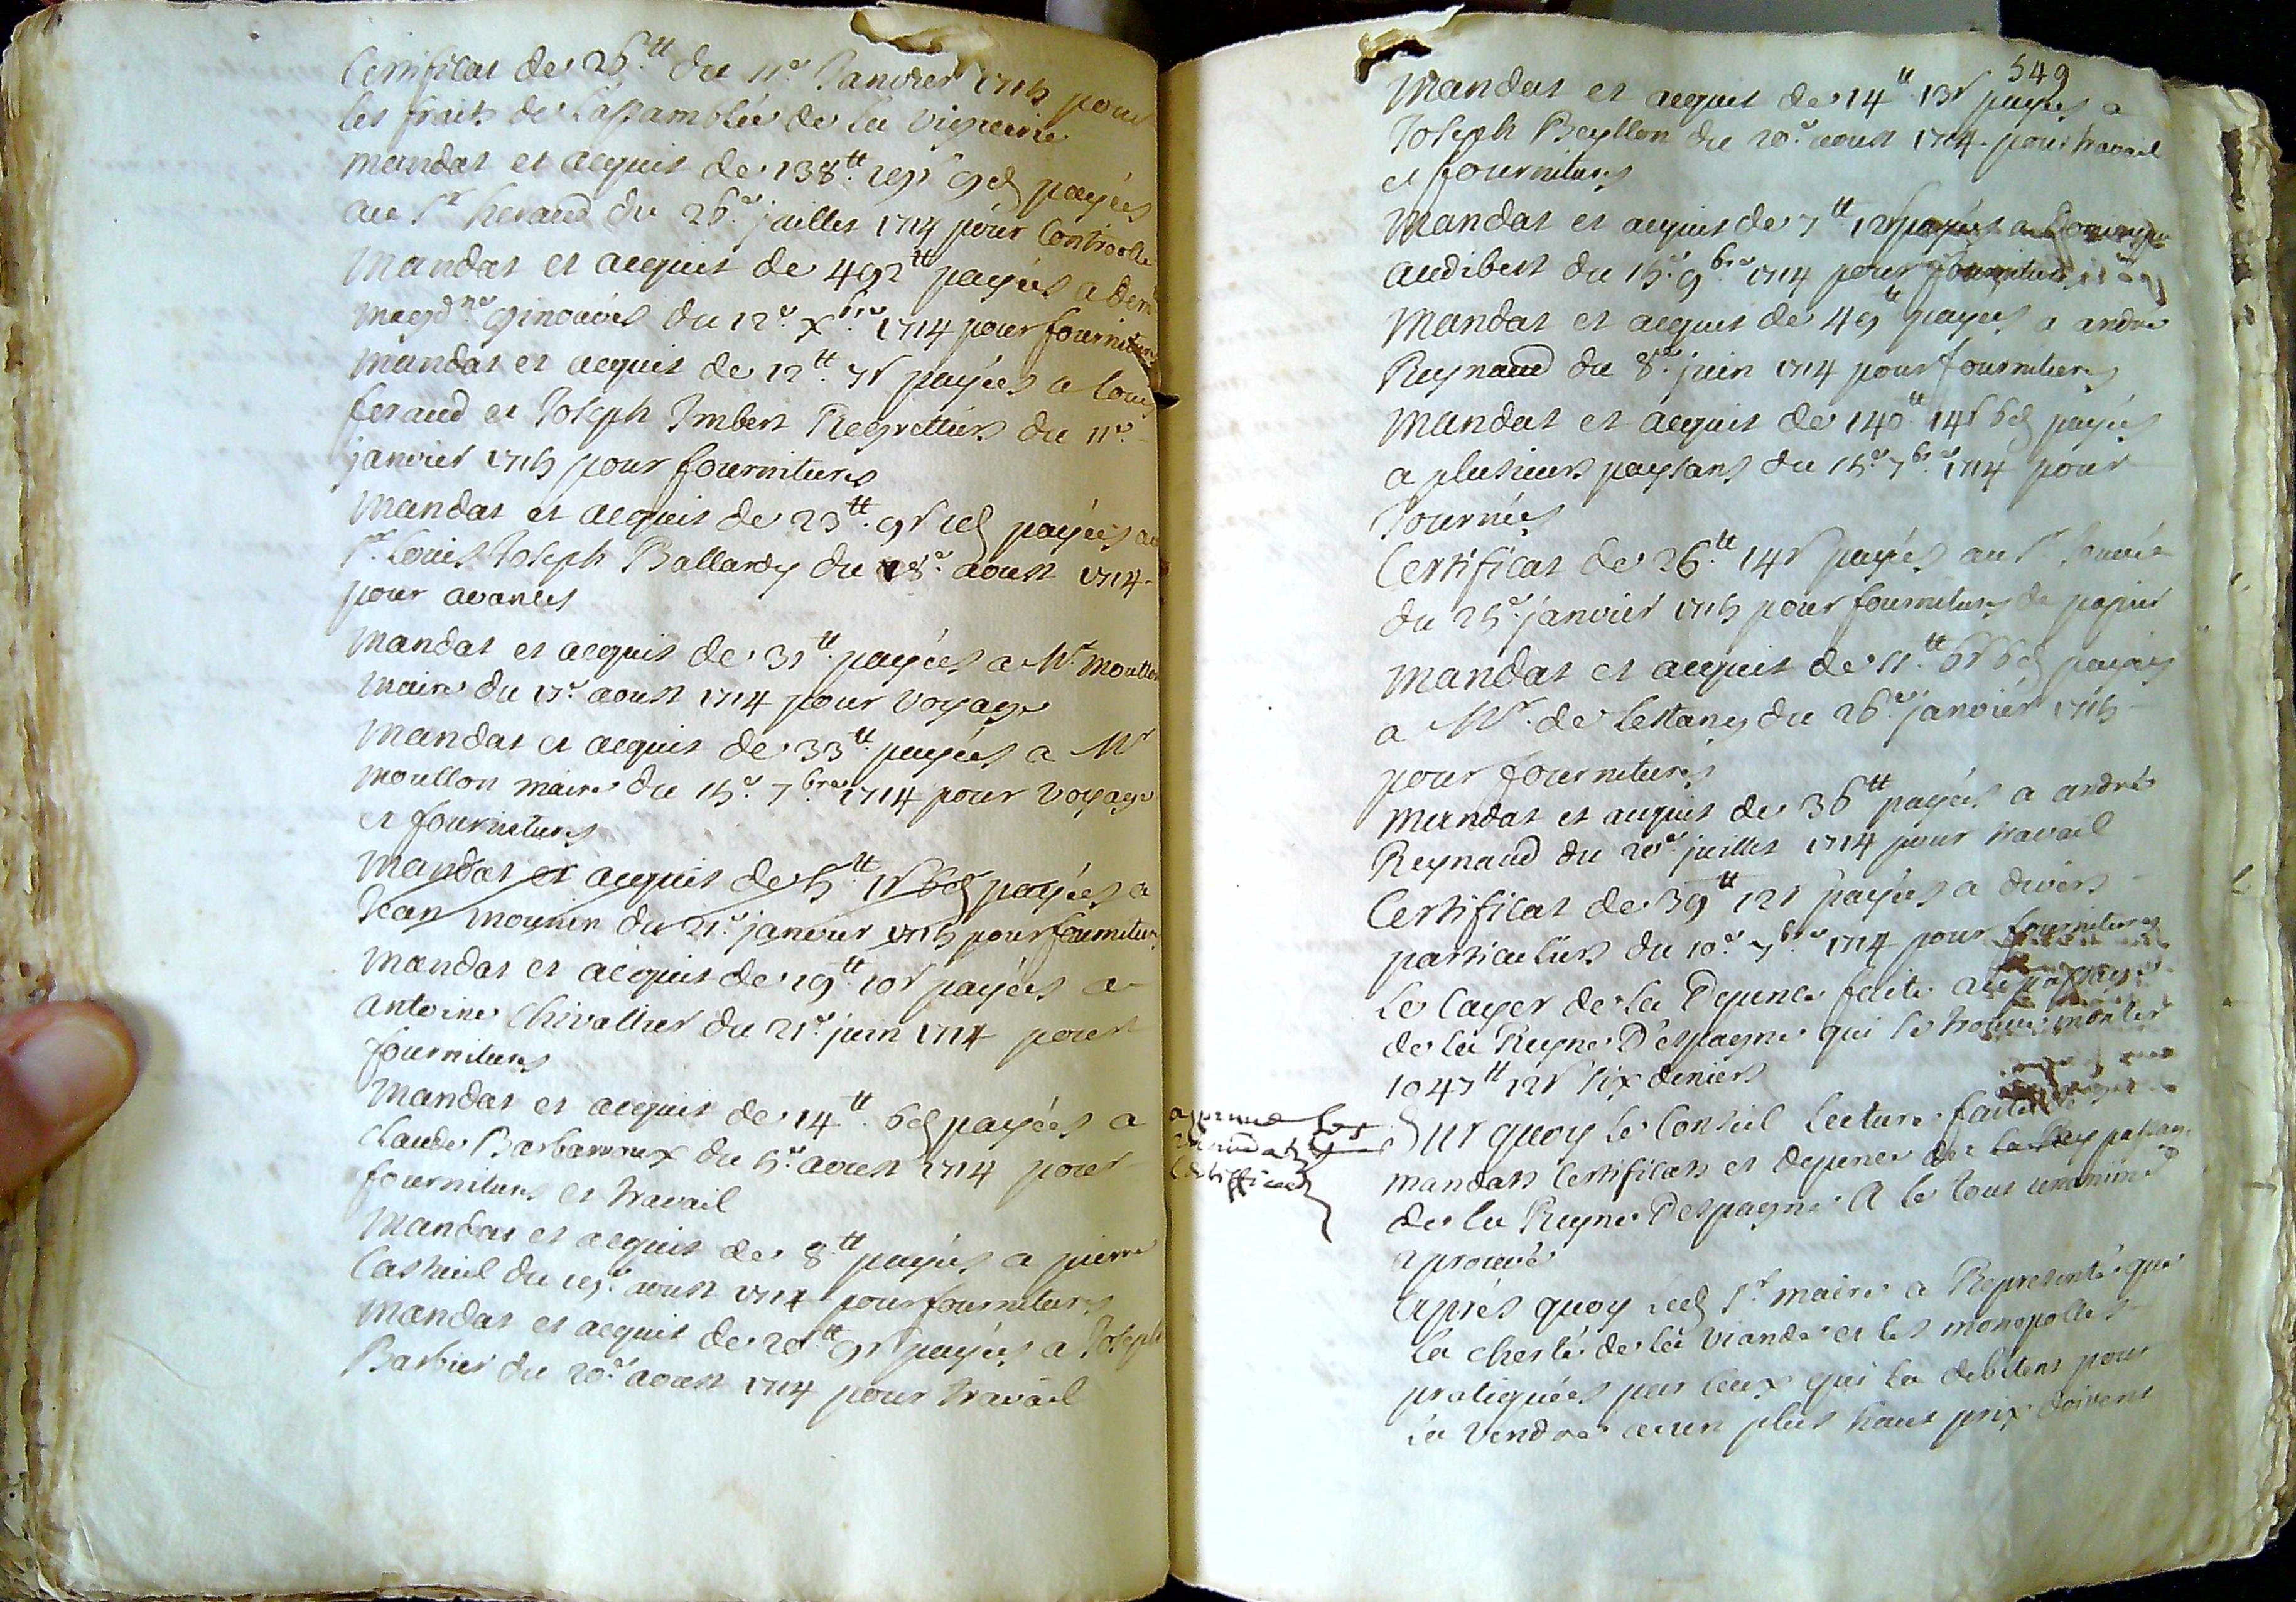 Certificat de 26.tt du 11.e Janvier 1715 pour
les fraits de Lassamblée de la viguerie
mandat et acquit de 138.tt 19s 9d payées
au Sr heraud du 26.e juillet 1714 pour Controolle
Mandat et acquit de 492tt payées a
magd.ne ginouvés du 12.e Xbre 1714 pour fournitures
Mandat et acquit de 12.tt 7s payées a Louis
feraud et Joseph Imbert Regrettiers du 11.e
janvier 1715 pour fournitures
Mandat et acquit de 23.tt 9s payées au
Sr Louis Joseph Ballardy du 18.e aoust 1714
pour avances
Mandat et acquit de 31.tt payées a Mr moullon
maire du 17.e aoust 1714 pour voyage
Mandat et acquit de 33.tt payées a Mr
moullon maire du 15.e 7bre 1714 pour voyage
et fournitures
Mandat et acquit de 5.tt 1s 6d payées a
Jean mounin du 21.e janvier 1715 pour fournitures
Mandat et acquit de 19.tt 10s payées a
antoine Chivallier du 21.e juin 1714 pour
fournitures
Mandat et acquit de 14.tt 6d payées a
claude Barbarroux du 5.e aoust 1714 pour
fournitures et travail
Mandat et acquit de 8.tt payées a pierre
Casteuil du 19.e aoust 1714 pour fournitures
Mandat et acquit de 20.tt 9s payées a Joseph
Barbier du 20.e aoust 1714 pour travail
549
Mandat et acquit de 14tt 13s payées a
Joseph Beyllon du 20.e aoust 1714 pour travail
et fournitures
Mandat et acquit de 7tt 12s payées a Dominique
audibert du 15.e 9bre 1714 pour fournitures
Mandat et acquit de 49tt payées a andré
Reynaud du 8.e juin 1714 pour fournitures
Mandat et acquit de 140tt 14s 6d payées
a plusieurs paysans du 15.e 7bre 1714 pour
Journées
Certificat de 26.tt 14s payées au Sr
du 25.e janvier 1715 pour fournitures de papier
Mandat et acquit de 11.tt 6s 6d payées
a Mr. de Lestang du 26.e janvier 1715
pour fournitures
Mandat et acquit de 36tt payées a andré
Reynaud du 20.e juillet 1714 pour travail
Certificat de 39tt 12s payées a divers
particuliers du 10.e 7bre 1714 pour fournitures
Le cayer de la Depance faite au passage
de la Reyne Despagne qui se trouve monter
1047tt 12s six deniers
aprouve les
mandats
Certifficats
Sur quoy le Conseil lecture faite
mandats Certificats et depance de passage
de la Reyne Despagne A le tout unanime
aprouvé
Après quoy led Sr maire a Representé que
la cherté de la viande et les monopolles
pratiquées par ceux qui la debitent pour
la vendre a un plus haut prix doivent